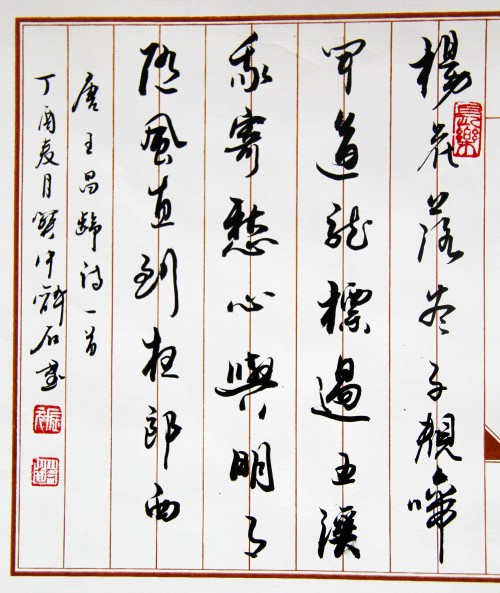 楊花落尽子規啼
長樂
聞道龍標過五溪
我寄愁心與明月
随風直到夜郎西
唐王昌齡詩一首
丁酉夏月